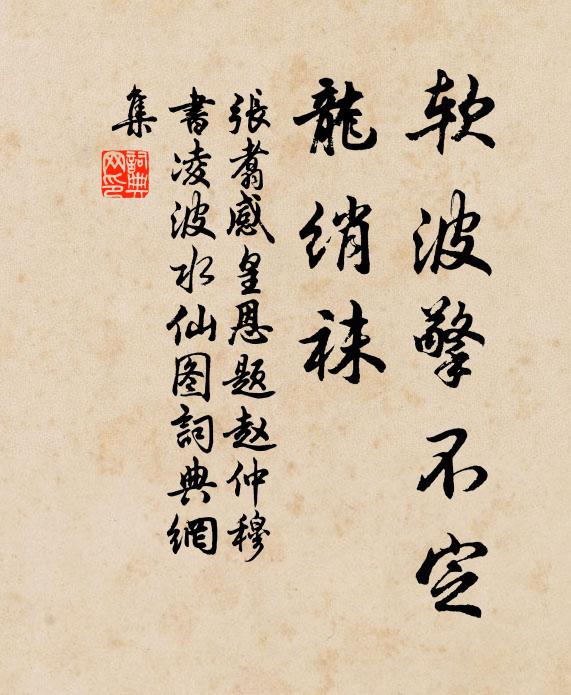 软波擎不定
龍绡袜
張翥感皇恩题赵仲穆
書凌波水仙图詞典網
集
詞典
网印